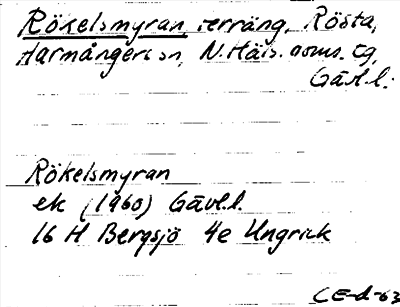 Rökelsmyran, terräng, Rösta,
Harmångers sn, N. Häls. doms. tg,
Gävl.l.
Rökelsmyran
ek (1960) Gävl.l.
16 H Bergsjö 4e Ungrick
CE-d-63